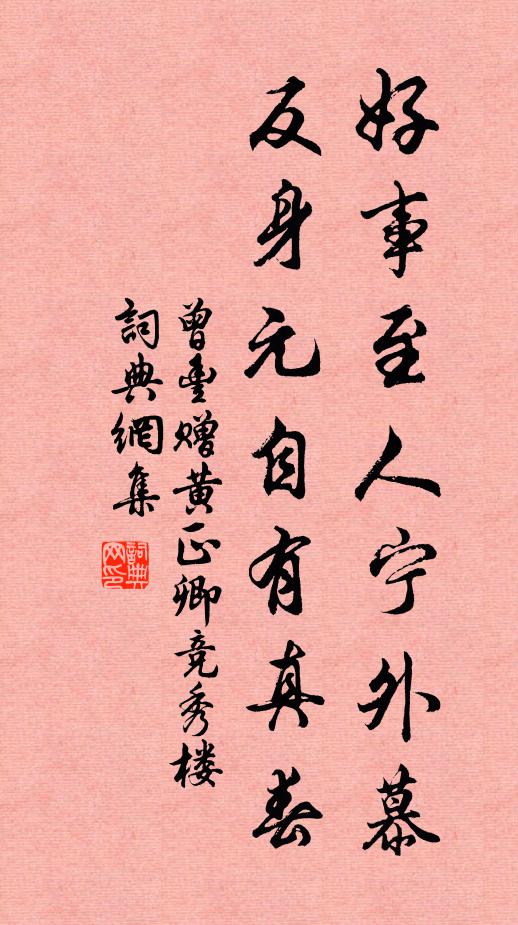 好事至人宁外慕
反身元自有真春
曾豐赠黄正卿竞秀楼
詞典網集
詞典網印